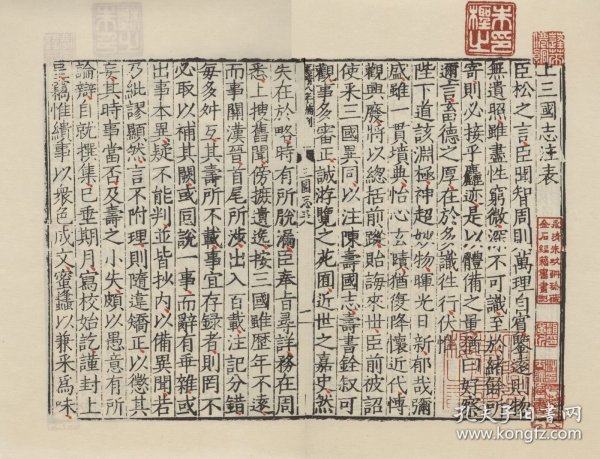 上三國志注表
臣松之言臣聞智周則萬理自賓鑒遠則物
無遺照雖盡性窮微深不可識至於緒餘所
寄則必接乎麤迹是以體備之量猶曰好察
邇言畜德之厚在於多識往行伏惟
陛下道該淵極神超妙物暉光日新郁哉彌
盛雖一貫墳典怡心玄賾猶復降懷近代博
觀興廢將以總括前蹤貽誨來世臣前被詔
使采三國異同以注陳壽國志壽書銓叙可
觀事多審正誠游覽之苑囿近世之嘉史然
三國志表
失在於略時有所脫漏臣奉旨尋詳務在周
悉上搜舊聞傍摭遺逸按三國雖歷年不遠
而事關漢晉首尾所涉出入百載注記分錯
每多舛互其壽所不載事宜存錄者則罔不
必取以補其闕或同說一事而辭有乖雜或
出事本異疑不能判並皆抄内以備異聞若
乃紕謬顯然言不附理則隨違矯正以懲其
妄其時事當否及壽之小失頗以愚意有所
論辯自就撰集已垂期月寫校始訖謹封上
呈竊惟繢事以衆色成文蜜蠭以兼采爲味
孔夫子旧书网
www.kongfz.com